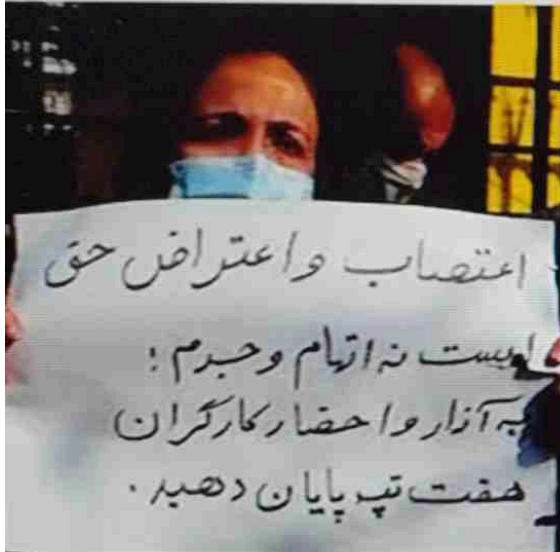 اعتصاب و اعتراض حق
ماست نه اتهام و جرم؛
به آزار و احضار کارگران
هفت تپه پایان دهید.